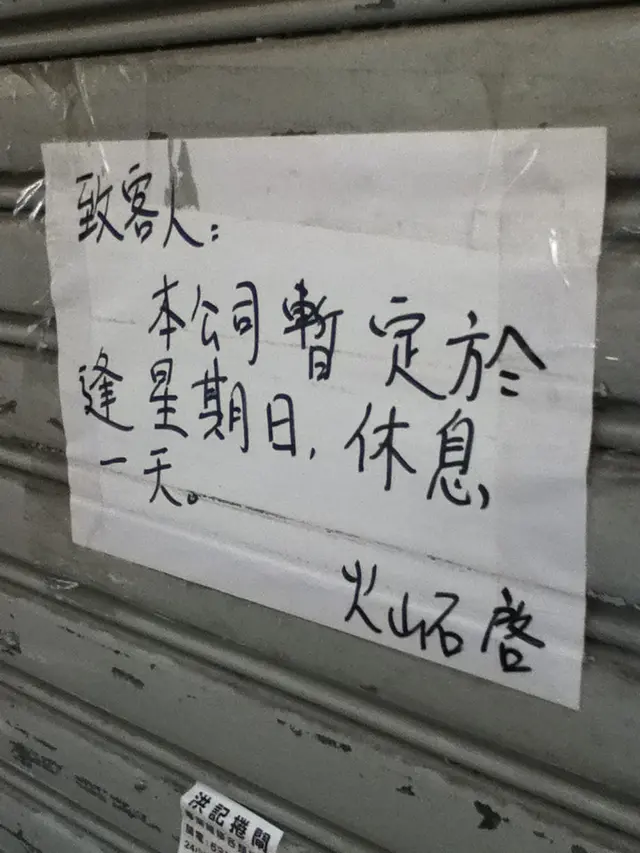 致客人：
本公司暫定於
逢星期日，休息
一天。
火山石 啓
洪記捲閘